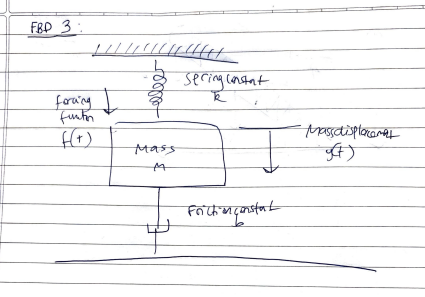 FBD 3:
Spring constant
k
forcing
function
f(t)
Mass
M
Mass displacement
y(t)
Friction constant
b